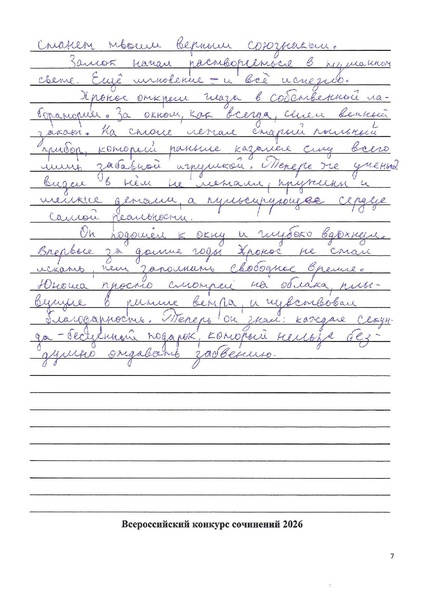 станет твоим верным союзником.
Замок начал растворяться в туманном
свете. Ещё мгновение – и всё исчезло.
Хронос открыл глаза в собственной ла-
боратории. За окном, как всегда, сиял вечный
закат. На столе лежал старый пыльный
прибор, который раньше казался ему всего
лишь забавной игрушкой. Теперь же ученый
видел в нём не металл, пружины и
мелкие детали, а пульсирующее сердце
самой реальности.
Он подошёл к окну и глубоко вдохнул.
Впервые за долгие годы Хронос не стал
искать, чем заполнить свободное время.
Юноша просто смотрел на облака, плы-
вущие в ритме ветра, и чувствовал
благодарность. Теперь он знал: каждая секун-
да – бесценный подарок, который нельзя без-
думно отдавать забвению.
Всероссийский конкурс сочинений 2026
7